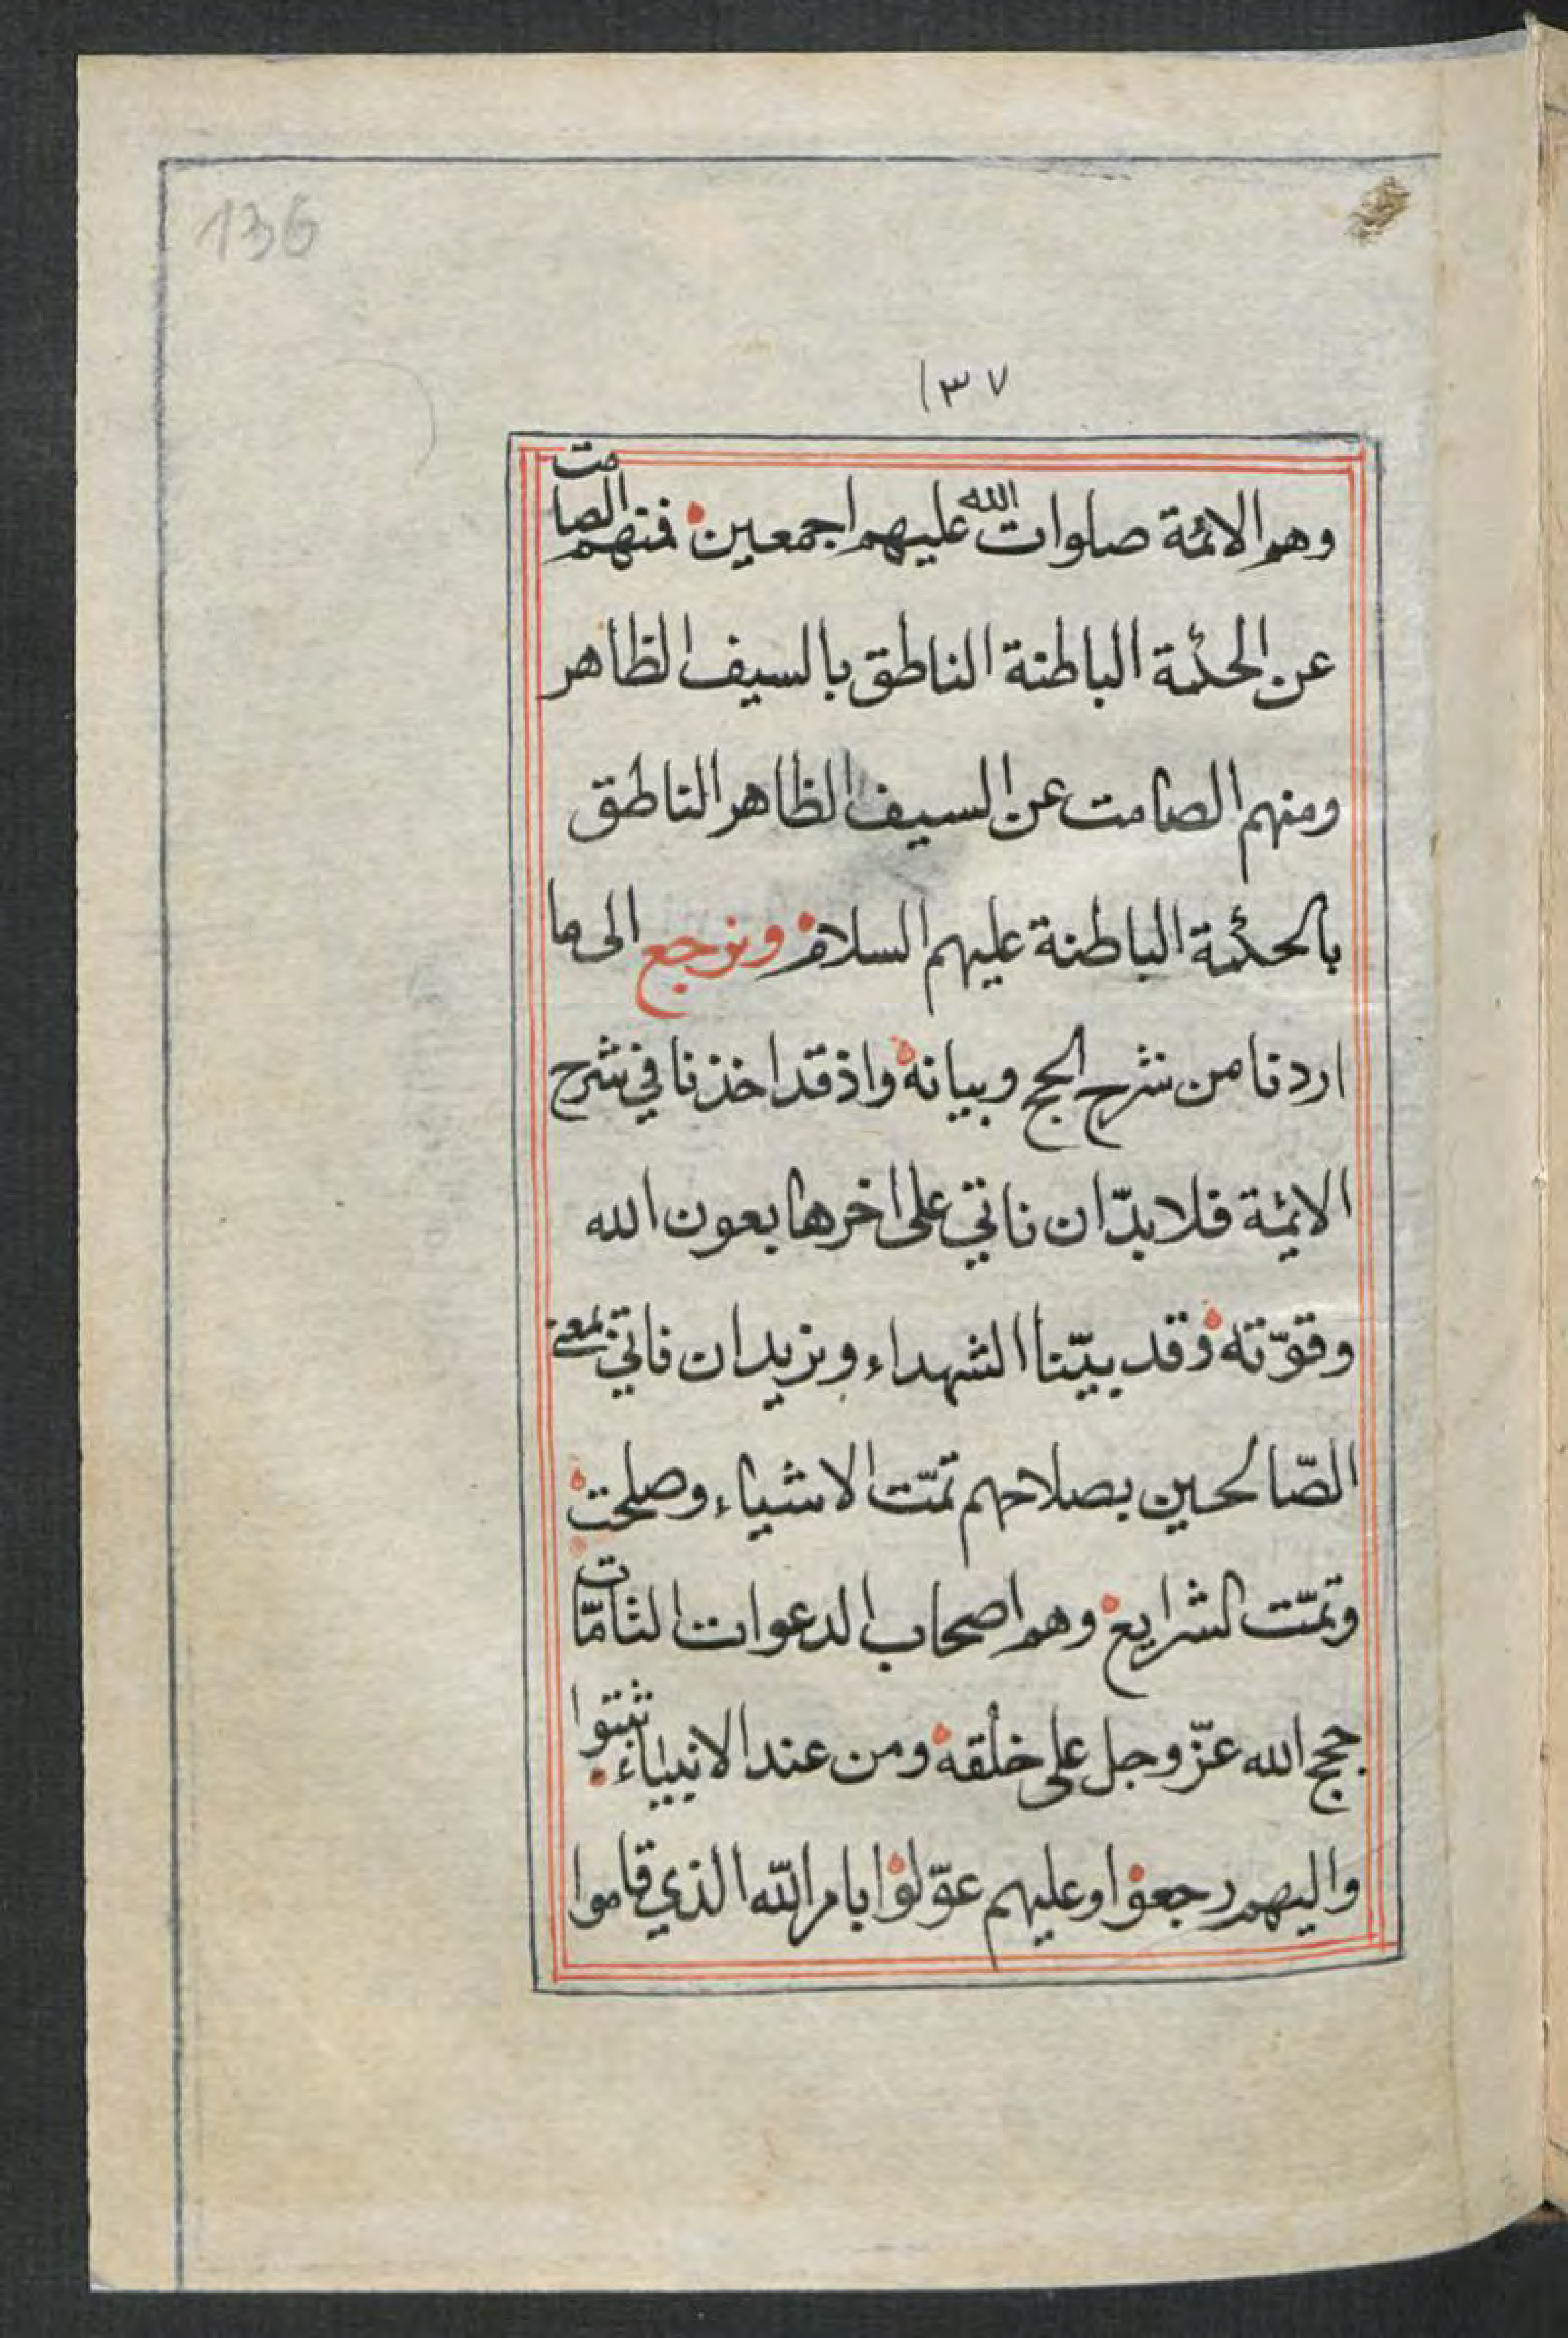 136
١٣٧
وهم الائمة صلوات الله عليهم اجمعين فمنهم الصامت
عن الحكمة الباطنة الناطق بالسيف الظاهر
ومنهم الصامت عن السيف الظاهر الناطق
بالحكمة الباطنة عليهم السلام ونرجع الى ما
اردنا من شرح الحج وبيانه واذ قد اخذنا في شرح
الائمة فلا بدّ ان ناتي على اخرها بعون الله
وقوّته وقد بيّنا الشهداء ونزيد ان ناتي بمعنى
الصّالحين بصلاحهم تمّت الاشياء وصلحت
وتمّت الشرايع وهم اصحاب الدعوات التامّات
حجج الله عزّ وجل على خلقه ومن عند الانبياء ثبتوا
واليهم رجعوا وعليهم عوّلوا بامر الله الذي قاموا